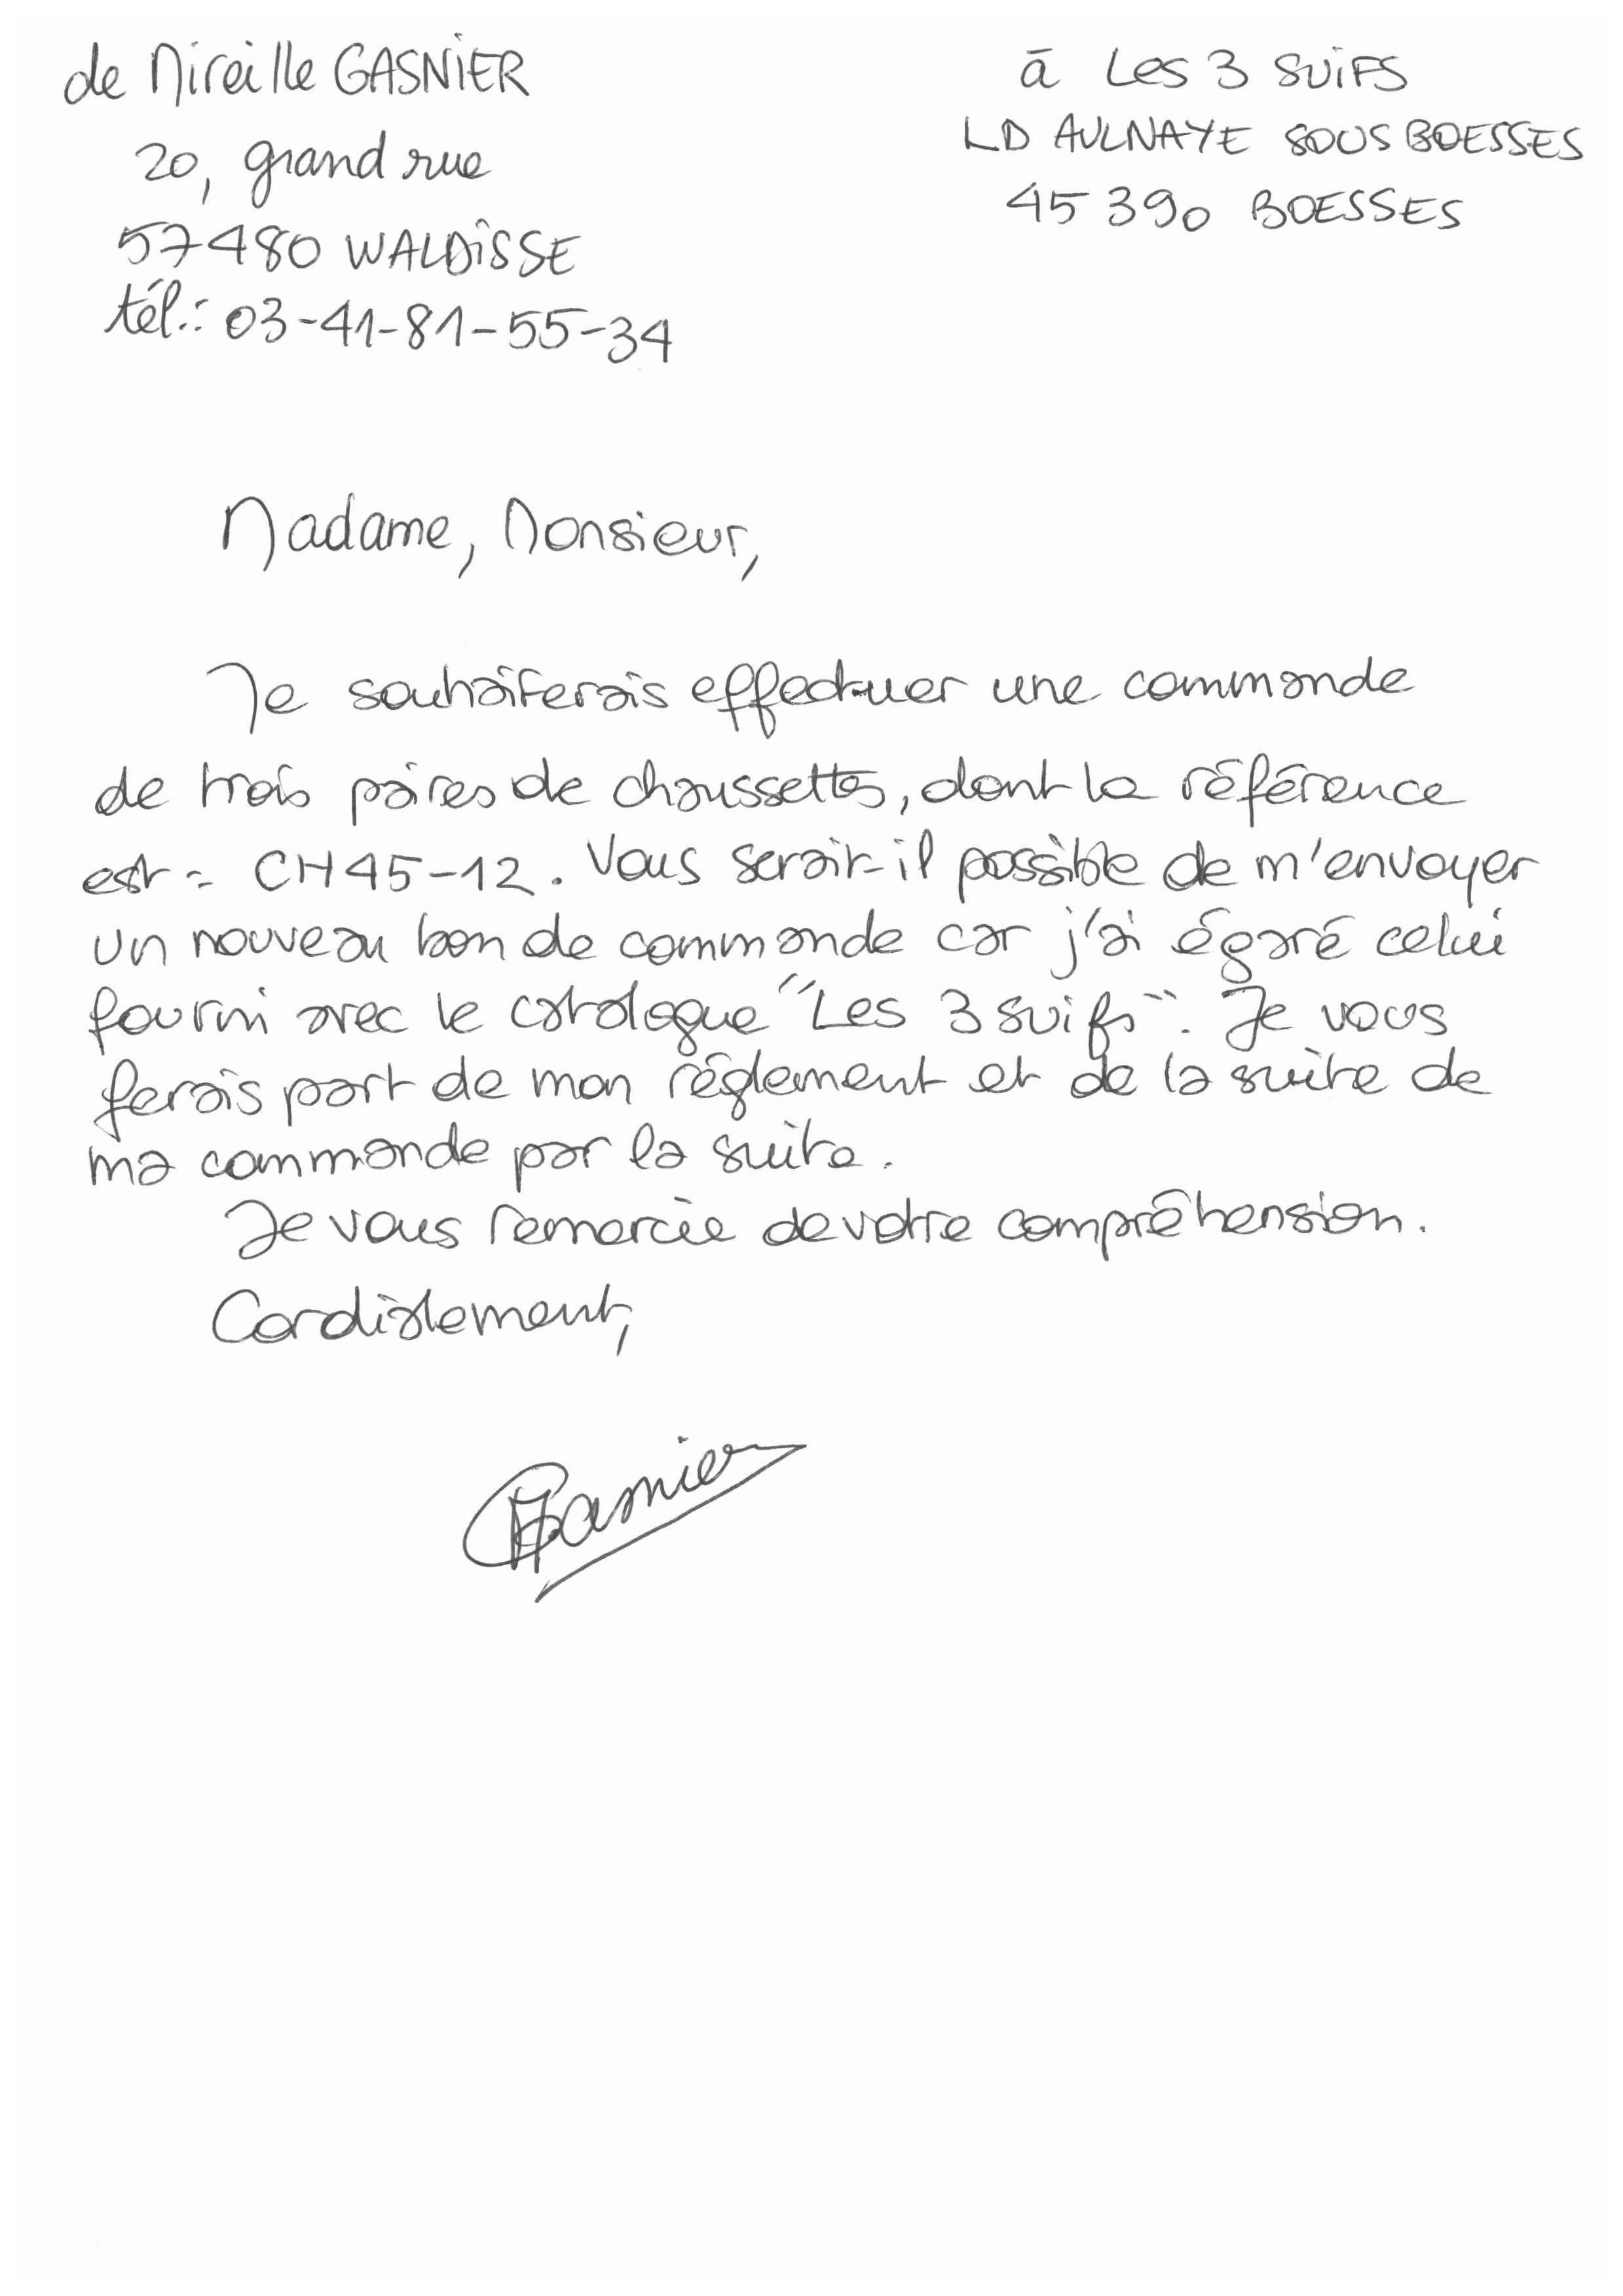 de Mireille GASNIER
20, grand rue
57480 WALDISSE
tél.: 03-41-81-55-34
à Les 3 SUIFS
LD AULNAYE SOUS BOESSES
45 390 BOESSES
Madame, Monsieur,
Je souhaiterais effectuer une commande
de trois paires de chaussettes, dont la référence
est = CH45-12. Vous serait-il possible de m'envoyer
un nouveau bon de commande car j'ai égaré celui
fourni avec le catalogue "Les 3 suifs". Je vous
ferais part de mon réglement et de la suite de
ma commande par la suite.
Je vous remercie de votre compréhension.
Cordialement,
Gasnier